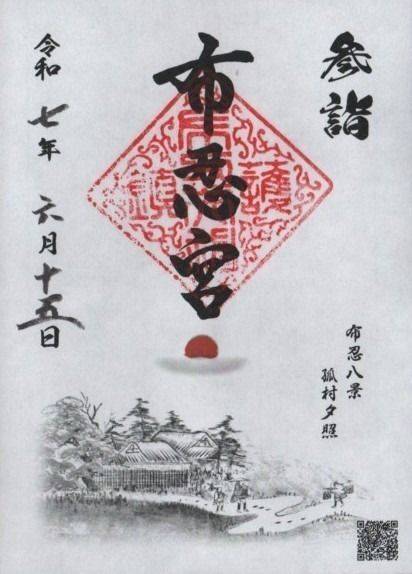 参詣
布忍宮
令和七年六月十五日
布忍八景
孤村夕照